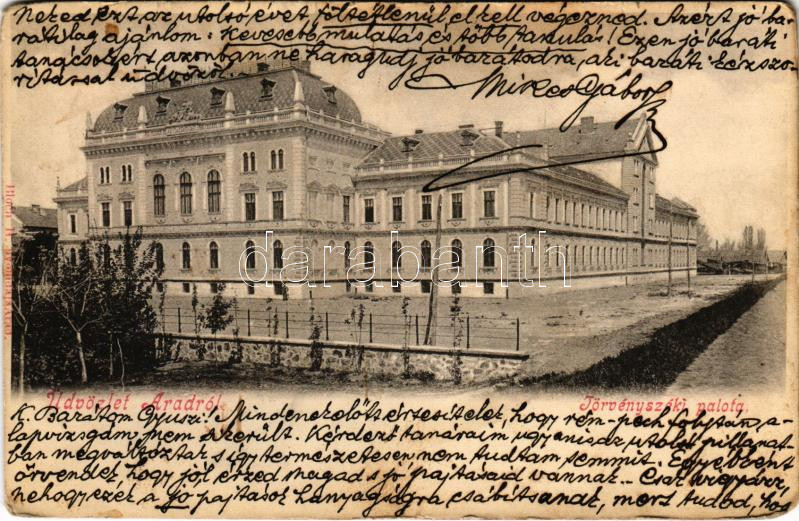 Neked ezt az utolsó évet, föltétlenül el kell végezned. Azért jó ba-
ráti lag ajánlom: Kevesebb mulatás és több tanulás! Ezen jó baráti
tanácsoért azonban ne haragudj jó barátodra, aki baráti kézszo-
rítással üdvözöl.
Mikes Gábor
Bloch H.
darabanth
Üdvözlet Aradról.
Törvényszéki palota.
K. Barátom Gyuszi! Mindenekelőtt értesítelek, hogy folytán a-
lapvizsgám nem sikerült. Kérdező tanáraim ugyanis az utolsó pillanat-
ban megváltoztak s így természetesen nem tudtam semmit. Egyébként
örvendek, hogy jól érzed magad s jó pajtásaid vannak. Csak vigyázz,
nehogy ezek a jó pajtások hanyagságra csábítsanak, mert tudod, hog